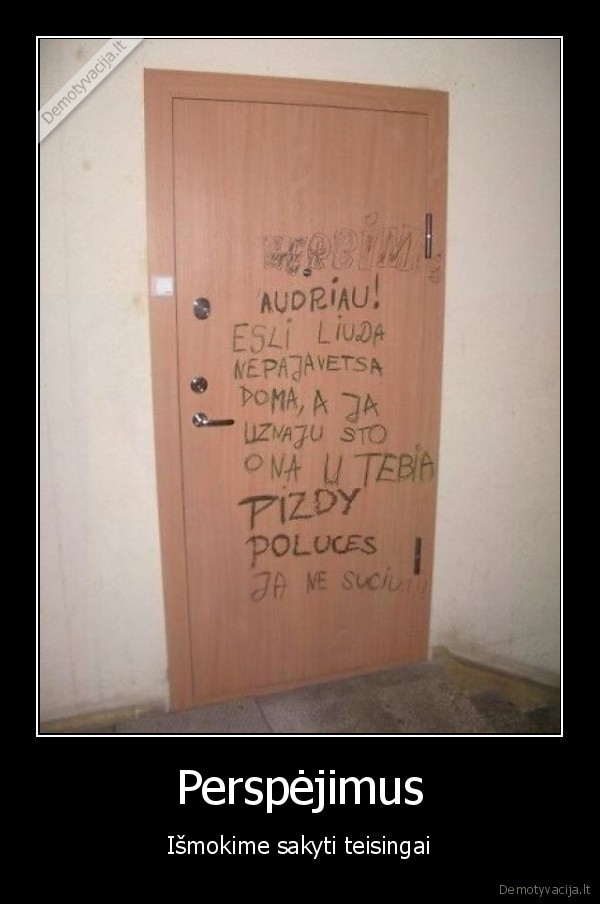 Demotyvacija.lt
AUDRIAU!
ESLI LIUDA
NEPAJAVETSA
DOMA, A JA
UZNAJU STO
ONA U TEBIA
PIZDY
POLUCES
JA NE SUCIU!!!
Perspėjimus
Išmokime sakyti teisingai
Demotyvacija.lt